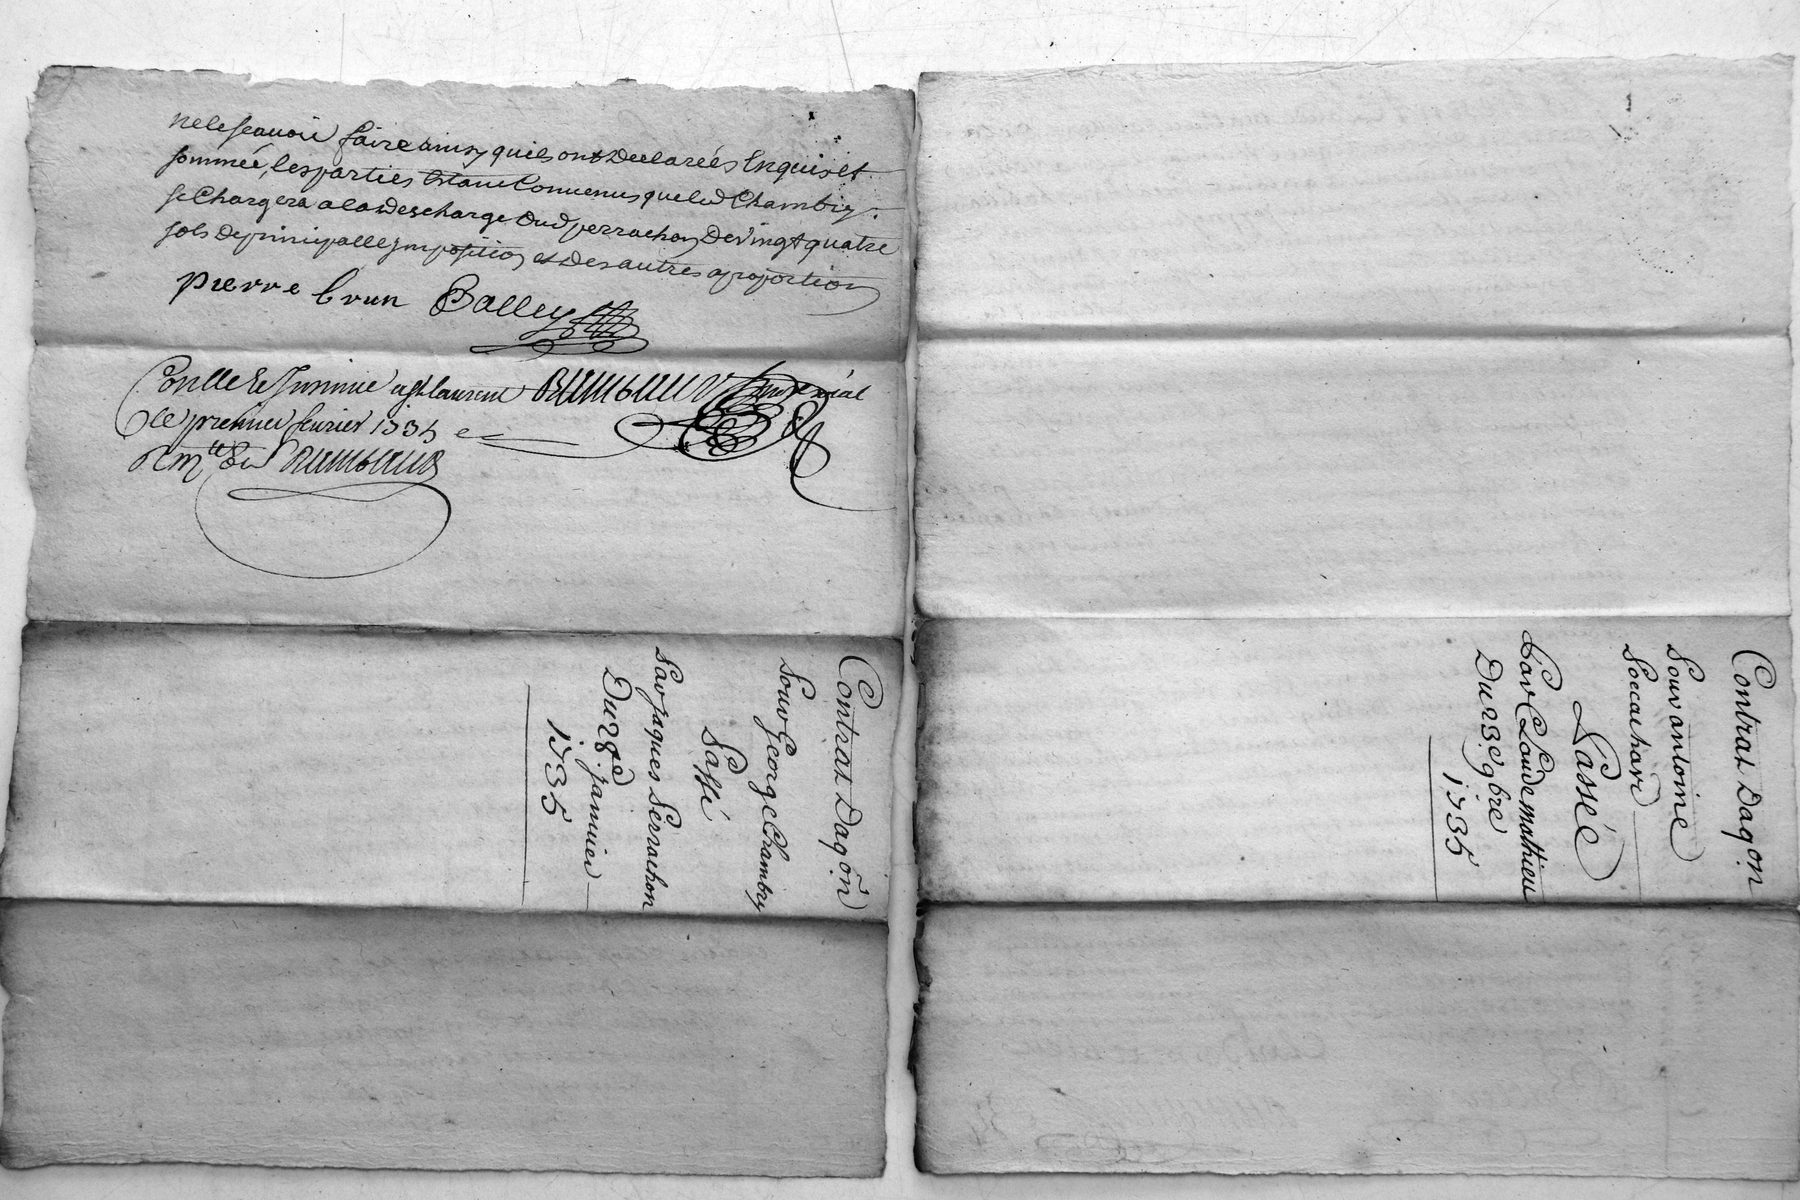 ne le scavoir faire ainsy quils ont declarées Enquis et
sommée, les parties Estant Convenus que led Chambry
se Chargera a la descharge dud perrachon de vingt quatre
sols de principalle jmposition et des autres a proportion
pierre brun Balley
le premier fevrier 1735
Contrat Daq.on
Pour George Chambry
Passé
Par jaques Perrachon
Du 28e. janvier
1735
Contrat Daq on
Pour antoine
Passé
Par Claude mathieu
Du 23e 9bre
1735